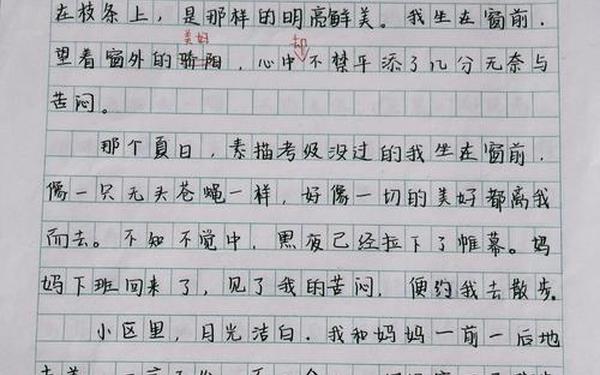 在枝条上，是那样的明亮鲜美。我坐在窗前，
美好 却
望着窗外的骄阳，心中不禁平添了几分无奈与
苦闷。
那个夏日，素描考级没过的我坐在窗前，
像一只无头苍蝇一样，好像一切的美好都离我
而去。不知不觉中，黑夜已经拉下了帷幕。妈
妈下班回来了，见了我的苦闷，便约我去散步。
小区里，月光洁白。我和妈妈一前一后地